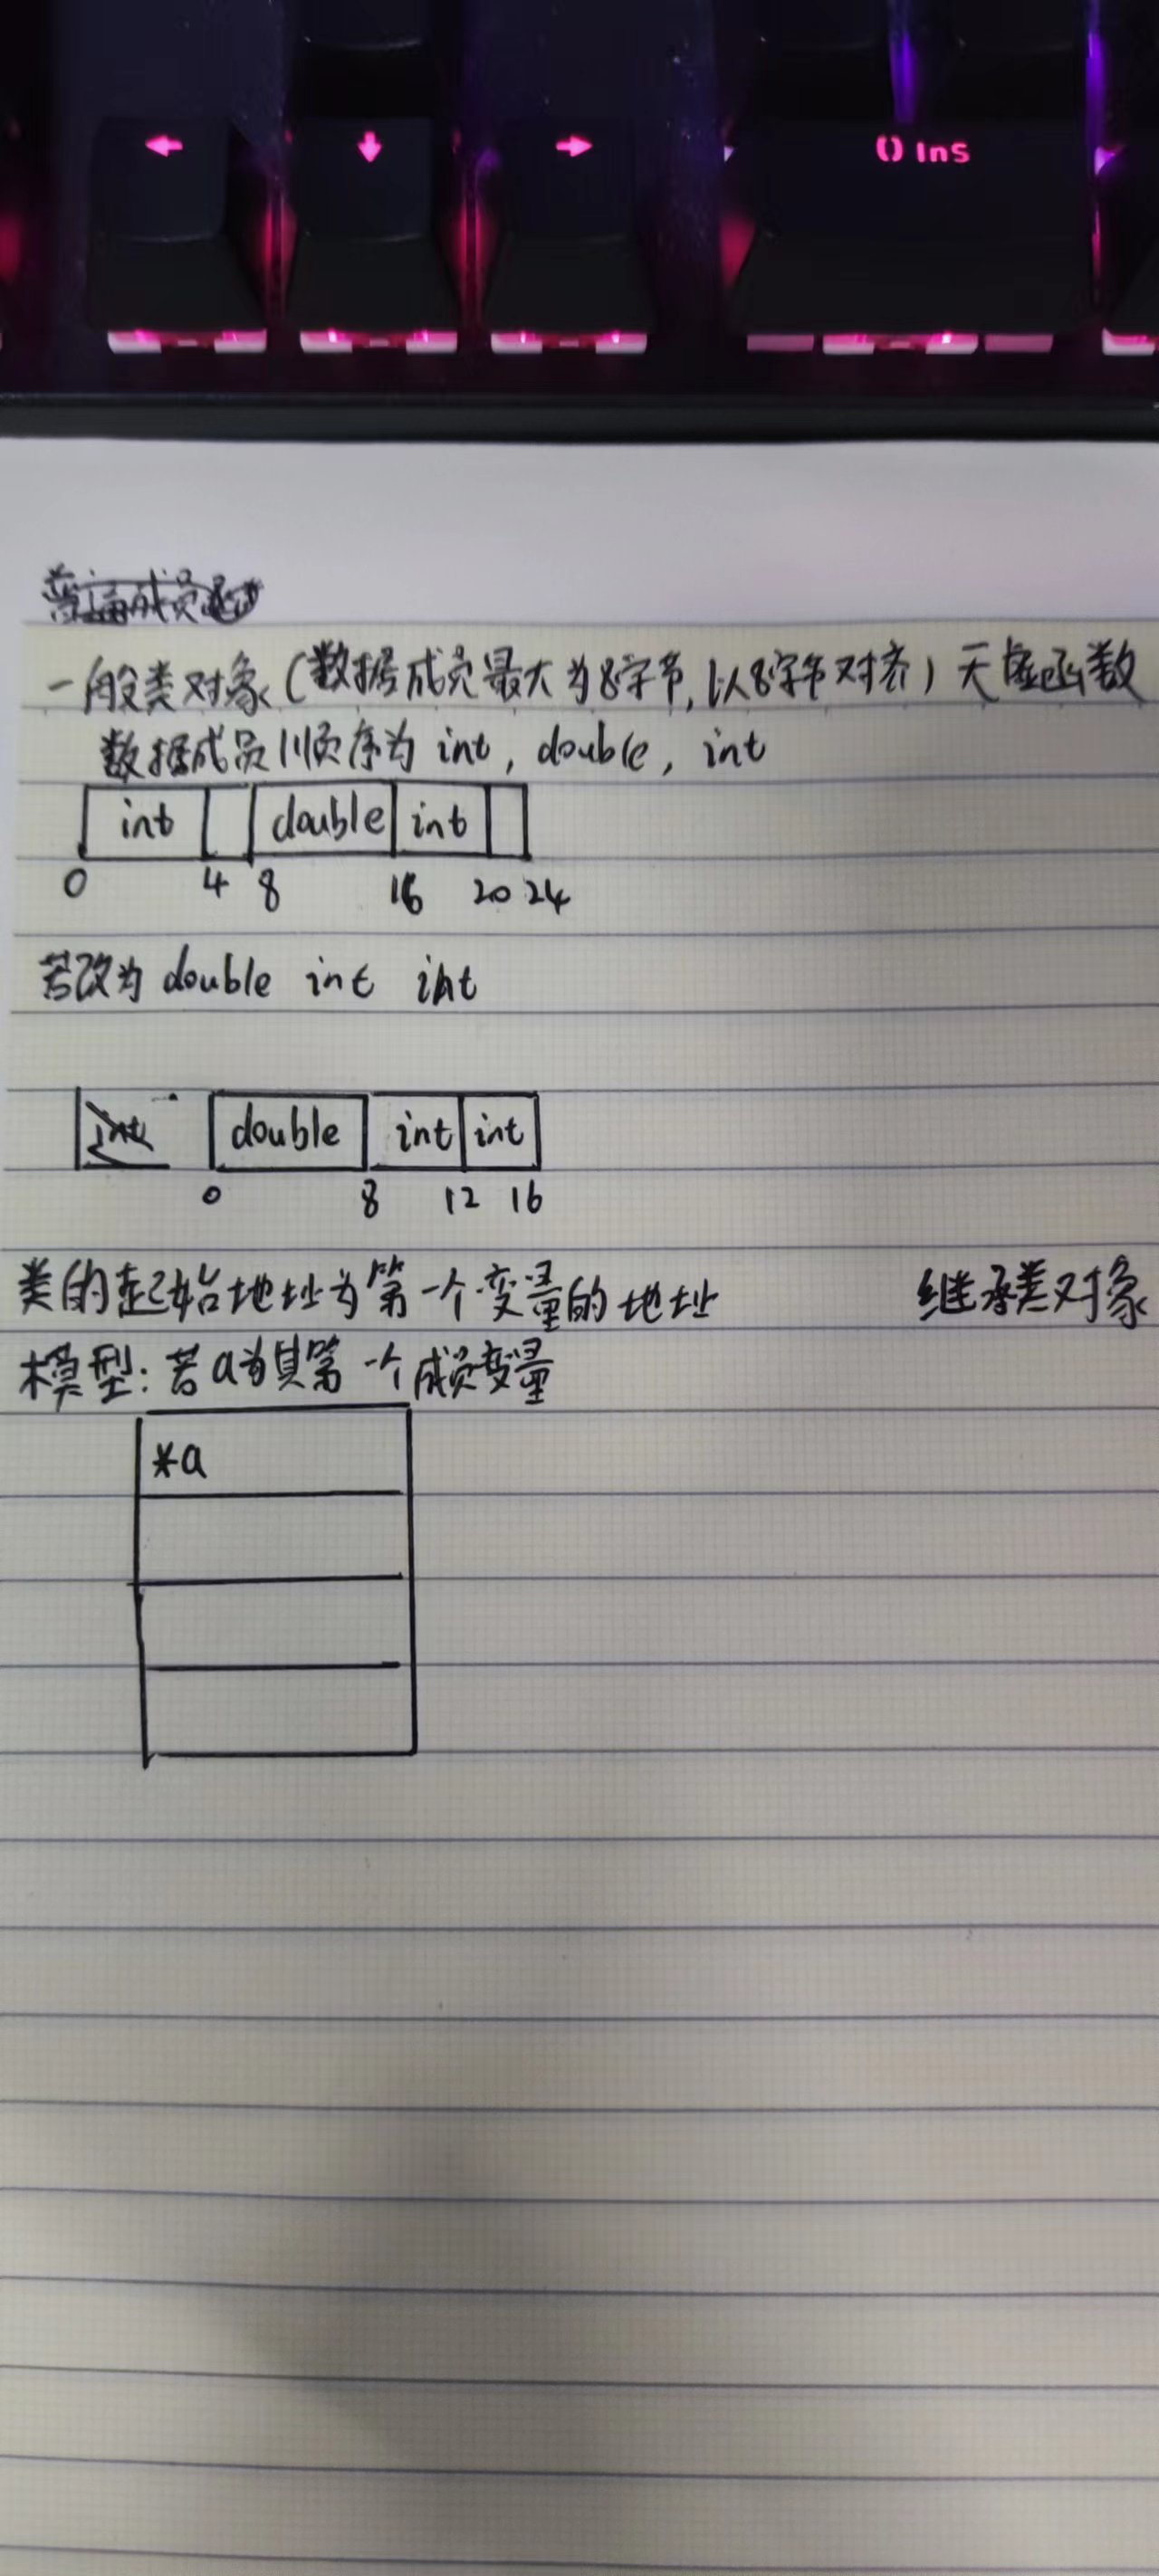 Ins
一般类对象(数据成员最大为8字节,以8字节对齐)无虚函数
数据成员顺序为 int, double, int
int double int
0 4 8 16 20 24
若改为 double int int
int double int int
0 8 12 16
类的起始地址为第一个变量的地址 继承类对象
模型:若a为其第一个成员变量
*a